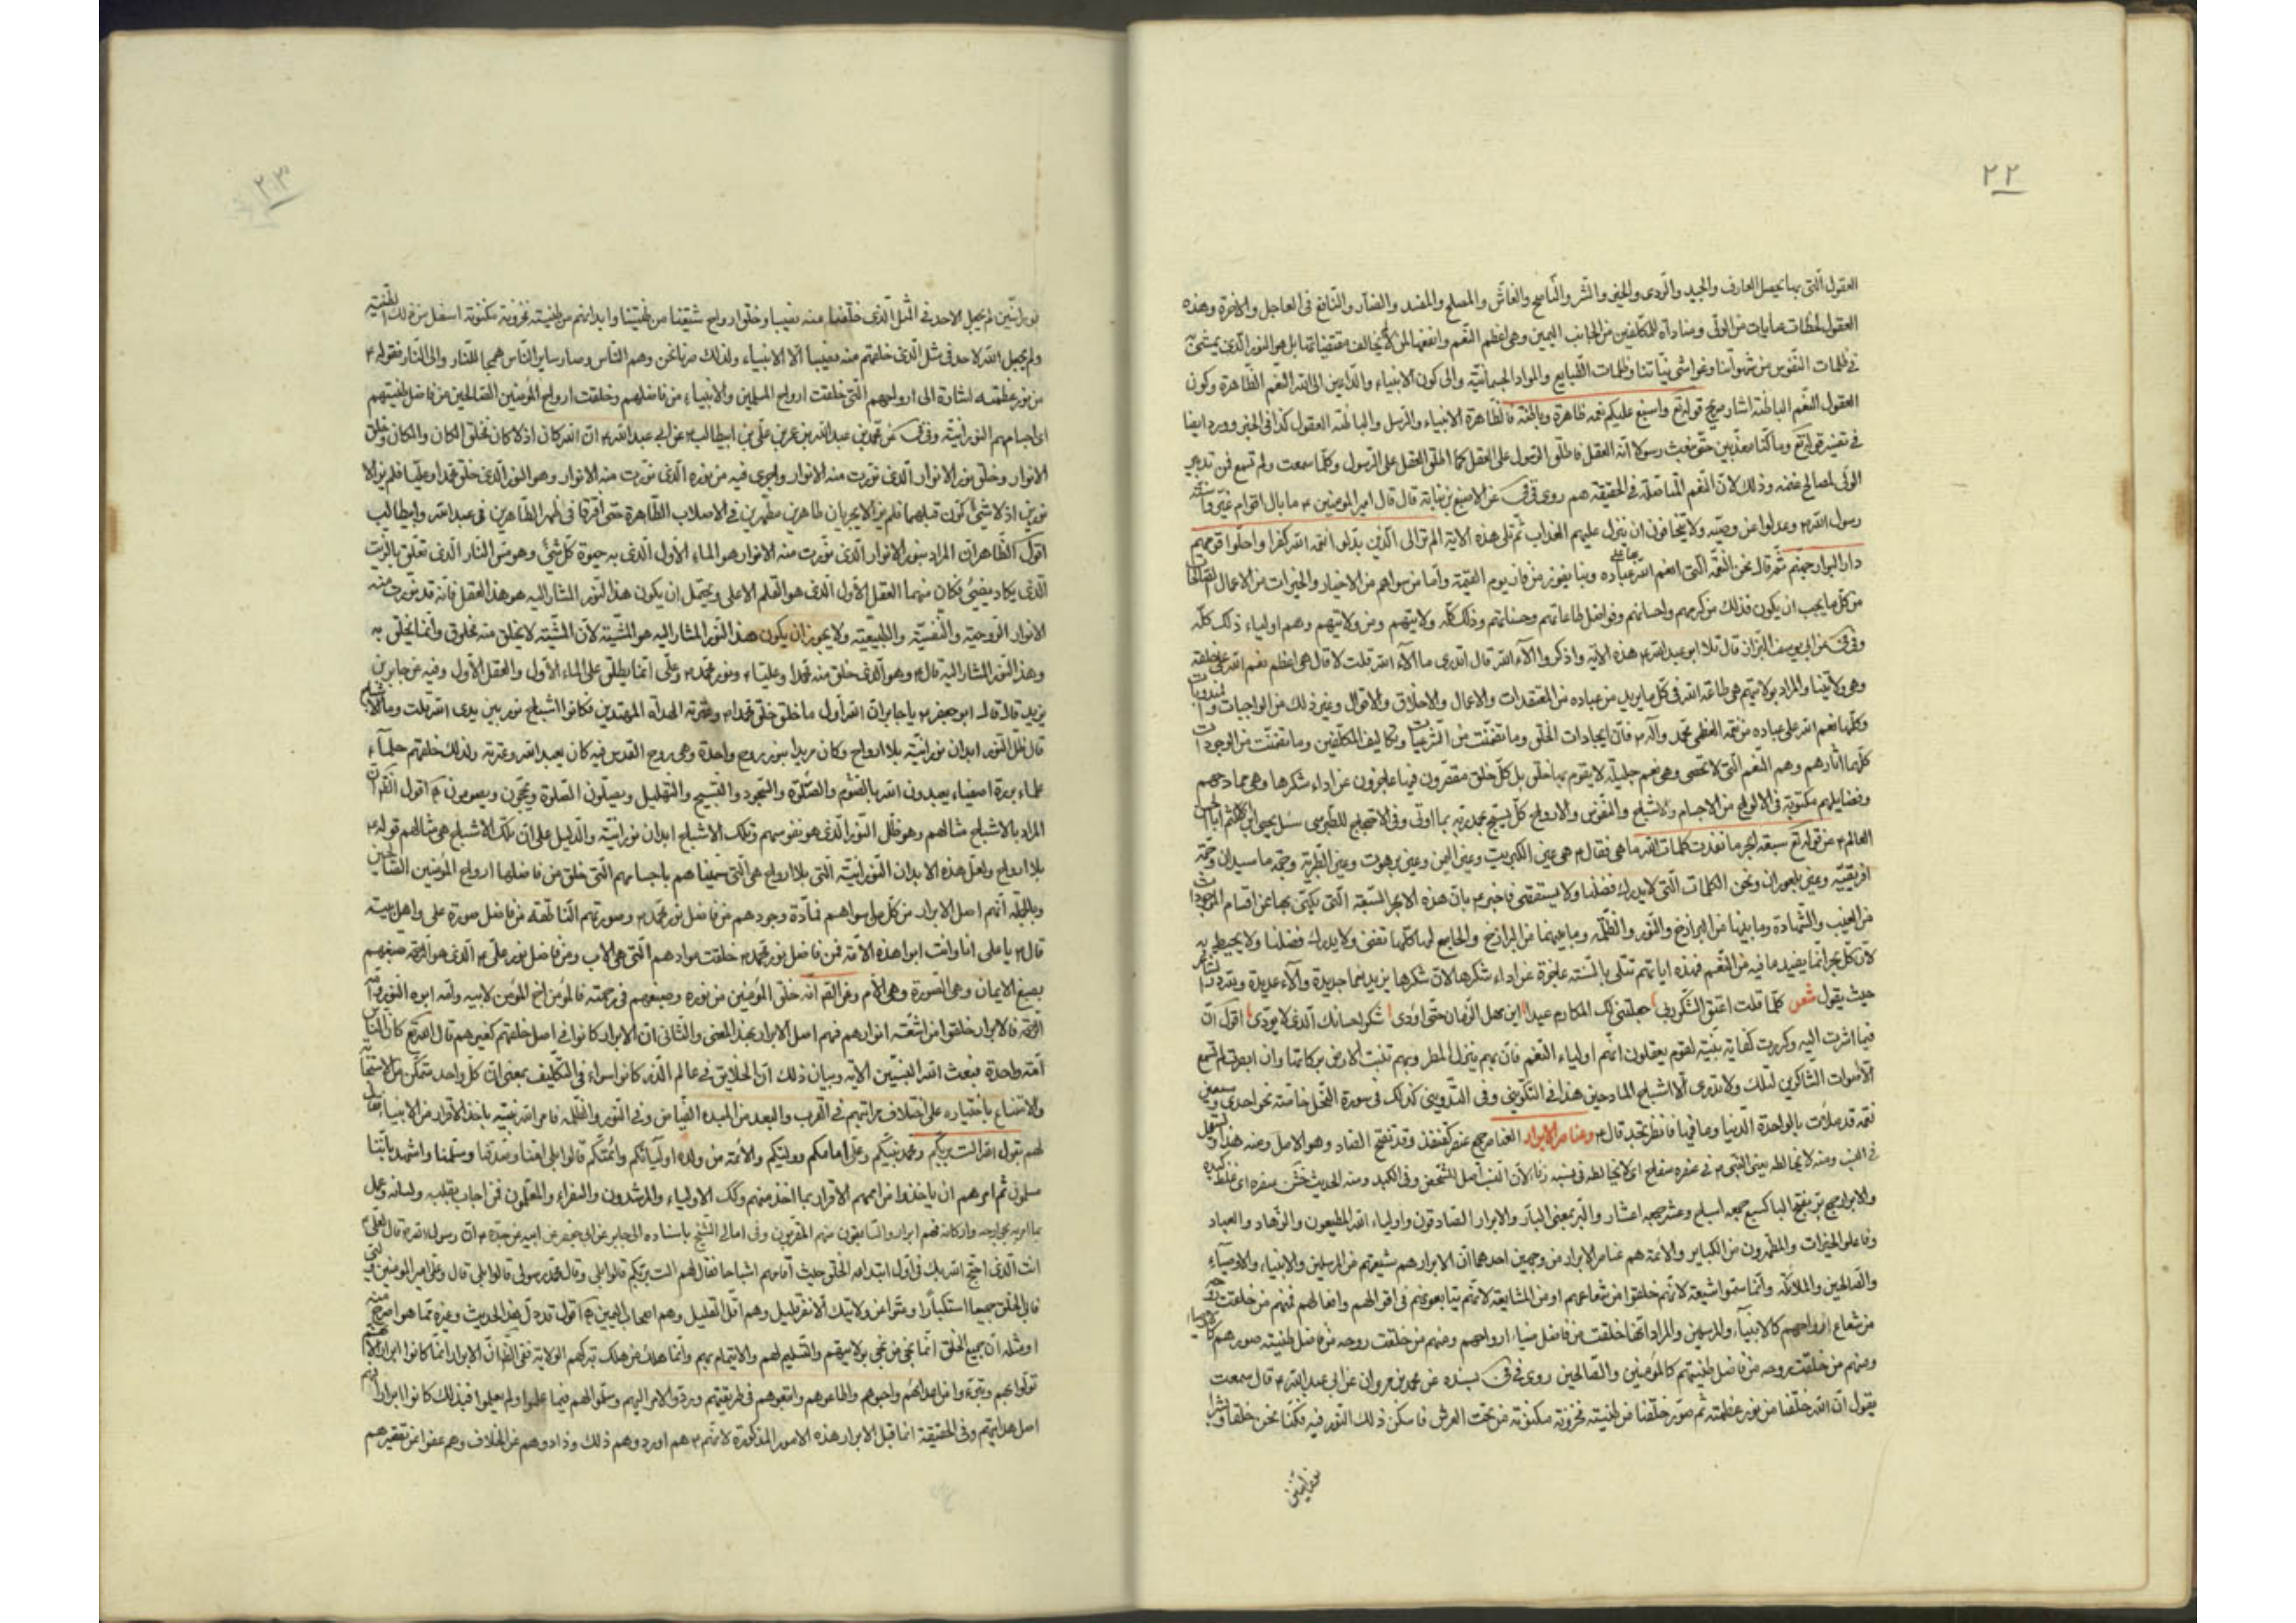 ٢٢
العقول الّتى بها تحصيل المعارف والجيد والردى والخير والشر والنّاصح والغاشّ والمصلح والمفسد والضارّ والنّافع فى العاجل والآخرة وهذه
فى ظلمات النّفوس من شهواتنا وغواشى نيّاتنا وظلمات الطّبايع والمواد الجسمانيّة والى كون الانبياء والدّاعين الى الله النّعم الظّاهرة وكون
العقول النّعم الباطنة اشار صريح قوله تع واسبغ عليكم نعمه ظاهرة وباطنة فالظّاهرة الانبياء والرّسل والباطنة العقول كذا فى الخبر وورد ايضا
فى تفسير قوله تع وما كنّا معذّبين حتّى نبعث رسولا انّه العقل فاطلق الرّسول على العقل كما اطلق العقل على الرّسول
روى فى فى عن الاصبغ بن نباتة قال قال امير المؤمنين ٤ ما بال اقوام غيّروا سنّة
رسول الله ص وعدلوا عن وصيّه ولا يتخافون ان ينزل عليهم العذاب ثم تلى هذه الاية الم تر الى الّذين بدّلوا نعمة الله كفرا واحلّوا قومهم
دار البوار جهنّم ثم قال نحن النّعمة الّتى انعم الله بها على عباده وبنا يفوز من فاز يوم القيمة وامّا من سواهم من الاخيار والخيرات من الاعمال الصّالحات
من كلّ ما يجب ان يكون فذلك من كرمهم واحسانهم وفواضل طاعاتهم وحسناتهم وذلك كلّه ولايتهم ومن ولايتهم وهم اولياء ذلك كلّه
وفى فى عن ابى يوسف البزاز قال تلا ابو عبد الله ٤ هذه الاية واذكروا آلاء الله قال اتدرى ما آلاء الله قلت لا قال هى اعظم نعم الله على خلقه
وهى ولايتنا والمراد بولايتهم هى طاعة الله فى كلّ ما يريد من عباده من المعتقدات والاعمال والاخلاق والاقوال وغير ذلك من الواجبات والمندوبات
وكلّها نعم الله على عباده من نعمه العظمى محمّد وآله ٤ فانّ ايجادات الخلق وما تضمّنت من الشرعيّات وتكاليف المكلّفين وما تضمّنت من الوجودات
كلّها آثارهم وهم النّعم الّتى لا تحصى وهى نعم جليلة لا يقوم بها خلق بل كلّ خلق مقصّرون فيها عاجزون عن اداء شكرها وهى محامدهم
وفضايلهم مكتوبة فى الالواح من الاجسام والاشباح والنّفوس والارواح كلّ يسبّح بحمد ربّه بما اوتى وفى الاحتجاج للطبرسى سئل يحيى بن اكثم ابا الحسن
العالم ٤ عن قوله تع سبعة ابحر ما نفدت كلمات الله ما هى فقال ٤ هى عين الكبريت وعين اليمن وعين برهوت وعين الطّبرية وحمّة ماسيدان وحمّة
افريقيّة وعين بلعوران ونحن الكلمات الّتى لا يدرك فضلنا ولا يستقصى فاخبر ٤ بانّ هذه الابحر السّبعة الّتى يكنّى بها عن اقسام الموجودات
من الغيب والشّهادة وما بينها من البرازخ والنّور والظّلمة وما بينهما من البرازخ والجامع لها كلّها تفنى ولا يدرك فضلنا ولا يحيط به
لانّ كلّ بحر انّما يفيد ما فيه من النّعم فهذه اياتهم تتلى بالسنة عاجزة عن اداء شكرها لانّ شكرها يزيد نعما جديدة وآلاء عديدة
حيث يقول شعر كلّما قلت اعتق الشّكر رقى جعلتنى لك المكارم عبدا اين مهل الزّمان حتّى اؤدى شكر احسانك الّذى لا يودّى اقول انّ
فيما اشرت اليه وكررت كفاية بيّنة لقوم يعقلون انّهم اولياء النّعم فانّ بهم ينزل المطر وبهم تنبت الارض بركاتها وان ابصرت لم تسمع
الاّ اصوات الشاكرين لتلك ولا تدرى الا اشباح المادحين هذا فى التّكوين وفى التّدوين كذلك فى سورة النّحل خاصّة نحو احدى وسبعين
نعمة قد ملأت بالواحدة الدّنيا وما فيها فانظر تجد قال ٤ وعناصر الابرار العناصر جمع عنصر كقنفذ وقد تفتح الصّاد وهو الاصل
والابرار جمع برّ بفتح الباء والبرّ بمعنى البارّ والابرار الصّادقون واولياء الله المطيعون والزّهاد والعباد
وفاعلوا الخيرات والمطهّرون من الكباير والائمّة هم عناصر الابرار من وجهين احدهما انّ الابرار هم شيعتهم من المرسلين والانبياء والاوصيآء
والصّالحين والملائكة وانّما سمّوا شيعة لانّهم خلقوا من شعاعهم او من المشايعة لانّهم يتابعونهم فى اقوالهم وافعالهم فمنهم من خلقت
من شعاع ارواحهم كالانبيآء والمرسلين والمراد انّها خلقت من فاضل ضياء ارواحهم ومنهم من خلقت روحه من فاضل طينته
ومنهم من خلقت روحه من فاضل طينتهم كالمؤمنين والصّالحين روى فى فى بسنده عن محمد بن مروان عن ابى عبد الله ٤ قال سمعت
يقول انّ الله خلقنا من نور عظمته ثم صوّر خلقنا من طينة مخزونة مكنونة من تحت العرش فاسكن ذلك النّور فيه فكنّا نحن خلقا وبشرا
نورانيّين
٢٣
نورانيّين لم يجعل لاحد فى مثل الّذى خلقنا منه نصيبا وخلق ارواح شيعتنا من طينتنا وابدانهم من طينة مخزونة مكنونة اسفل من ذلك الطّينة
ولم يجعل الله لاحد فى مثل الّذى خلقهم منه نصيبا الّا الانبياء ولذلك صرنا نحن وهم النّاس وصار ساير النّاس همجا للنّار والى النّار فقوله ٤
من نور عظمته اشارة الى ارواحهم الّتى خلقت ارواح المرسلين والانبياء من فاضلهم وخلقت ارواح المؤمنين الصّالحين من فاضل طينتهم
اى اجسامهم النورانيّة وفى فى عن محمّد بن عبد الله بن عمر بن على بن ابيطالب ٤ عن ابى عبد الله ٤ انّ الله كان اذ لا كان فخلق الكان والمكان وخلق
الانوار وخلق نور الانوار الّذى نوّرت منه الانوار واجرى فيه من نوره الّذى نوّرت منه الانوار وهو النور الّذى خلق محمّدا وعليّا فلم يزالا
نورين اذ لا شىء كوّن قبلهما فلم يزالا يجريان طاهرين مطهّرين فى الاصلاب الطّاهرة حتّى افترقا فى اطهر الطّاهرين فى عبد الله وابيطالب
اقول الظّاهر انّ المراد بنور الانوار الّذى نوّرت منه الانوار هو الماء الاول الّذى به حيوة كلّ شىء وهو مسّ النار الّذى تعلّق بالزّيت
الّذى يكاد يضيئ فكان منهما العقل الاول الّذى هو القلم الاعلى ويحتمل ان يكون هذا النّور المشار اليه هو هذا العقل فانّه قد نوّرت منه
الانوار الرّوحيّة والنّفسيّة والطّبيعيّة ولا يجوز ان يكون هذا النّور المشار اليه هو المشيّة لانّ المشيّة لا يخلق منه مخلوق وانّما يخلق به
وهذا النّور المشار اليه قال ٤ وهو الّذى خلق منه محمّدا وعليّا ٤ ونور محمّد ٤ وعلى انّما يطلق على الماء الاول والعقل الاول وفيه عن جابر بن
يزيد قال قال ابو جعفر ٤ يا جابر انّ الله اوّل ما خلق خلق محمّدا ٤ وعترته الهداة المهتدين فكانوا اشباح نور بين يدى الله قلت وما الاشباح
قال ظلّ النّور ابدان نورانيّة بلا ارواح وكان مؤيدا بنور روح واحدة وهى روح القدس فبه كان يعبد الله وعترته ولذلك خلقهم حلمآء
علماء بررة اصفياء يعبدون الله بالصّوم والصّلوة والسّجود والتّسبيح والتّهليل ويصلّون الصّلوة ويحجّون ويصومون اقول
المراد بالاشباح مثالهم وهو ظلّ النّور الّذى هو نفوسهم وتلك الاشباح ابدان نورانيّة والدّليل على انّ تلك الاشباح هى مثالهم قوله ٤
بلا ارواح ولعلّ هذه الابدان النّورانيّة الّتى بلا ارواح هى الّتى سمّيناهم باجسامهم الّتى خلق من فاضلها ارواح المؤمنين الصّالحين
وبالجملة انّهم اصل الابرار من كلّ ما سواهم فمادّة وجودهم من فاضل نور محمّد ٤ وصورتهم النّاطقة من فاضل صورة على واهل بيته
قال ٤ يا على انا وانت ابوا هذه الامّة فمن فاضل نور محمّد ٤ خلقت موادهم الّتى هى الاب ومن فاضل نور على ٤ الّذى هو الرّحمة صبغهم
بصبغ الايمان وهى الصّورة وهى الام انّه خلق المؤمنين من نوره وصبغهم فى رحمته فالمؤمن اخ المؤمن لابيه وامّه ابوه النور وامّه
الرّحمة فالابرار خلقوا من اشعّة انوارهم فهم اصل الابرار بهذا المعنى والثّانى انّ الابرار كانوا فى اصل خلقتهم كغيرهم قال الله تع كان النّاس
امّة واحدة فبعث الله النّبيّين الاية وبيان ذلك انّ الخلايق فى عالم الذّر كانوا سواء فى التّكليف بمعنى انّ كلّ واحد متمكّن من الاستجابة
والامتناع باختياره على اختلاف مراتبهم فى القرب والبعد من المبدء الفيّاض وفى النّور والظّلمة فامر الله نبيّه باخذ الاقرار من الانبياء
لهم بقول الله الست بربّكم ومحمّد نبيّكم وعلى امامكم ووليّكم والائمّة من ولده اوليآئكم وائمّتكم قالوا بلى امنّا وصدّقنا وسلّمنا واشهد بانّنا
مسلمون ثم امرهم ان ياخذوا من اممهم الاقرار بما اخذ منهم وكذلك الاولياء والمرشدون والسفراء والمعلّمون فمن اجاب بقلبه ولسانه وعمل
بما امر به بجوارحه واركانه فهم ابرار والسّابقون منهم المقرّبون وفى امالى الشّيخ باسناده الى جابر عن ابى جعفر عن ابيه عن جدّه ٤ انّ رسول الله ص قال لعلى ٤
انت الّذى احتج الله بك فى اوّل ابتداء الخلق حيث اقامهم اشباحا فقال لهم الست بربّكم قالوا بلى وقال محمّد رسولى قالوا بلى قال وعلى امير المؤمنين
فابى الخلق جميعا استكبارا وعتوّا عن ولايتك الّا نفر قليل وهم اقلّ القليل وهم اصحاب اليمين اقول قد دلّ هذا الحديث وغيره ممّا هو اصرح منه
او مثله انّ جميع الخلق انّما نجى من نجى بولايتهم والتّسليم لهم والايتمام بهم وانّما هلك من هلك بتركهم الولاية
تولّوا بهم وتبرّءوا من اعدائهم واحبّوهم واطاعوهم واتّبعوهم فى طريقتهم وردّوا الامر اليهم وسلّموا لهم فيما علموا ولم يعلموا فبذلك كانوا ابرارا
اصل هدايتهم وفى الحقيقة انّما قبل الابرار هذه الامور المذكورة لانّهم ٤ هم اوردوهم ذلك وذادوهم عن الخلاف وهم عفوا عن تقصيرهم